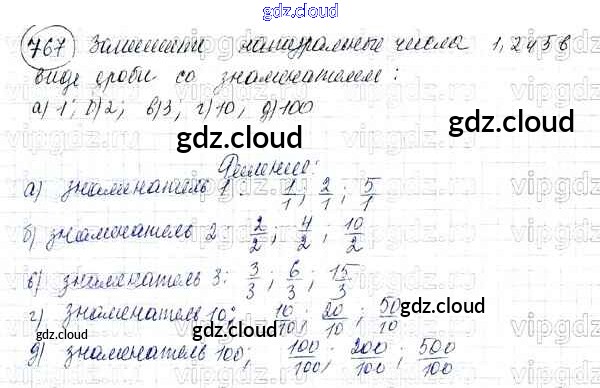 gdz.cloud
767 Запишите натуральные числа 1, 2 и 5 в
виде дроби со знаменателем:
а) 1; б) 2; в) 3; г) 10; д) 100
gdz.cloud
gdz.cloud
Решение:
а) знаменатель 1: 1/1; 2/1; 5/1
б) знаменатель 2: 2/2; 4/2; 10/2
в) знаменатель 3: 3/3; 6/3; 15/3
г) знаменатель 10: 10/10; 20/10; 50/10
gdz.cloud
gdz.cloud
д) знаменатель 100; 100/100; 200/100; 500/100